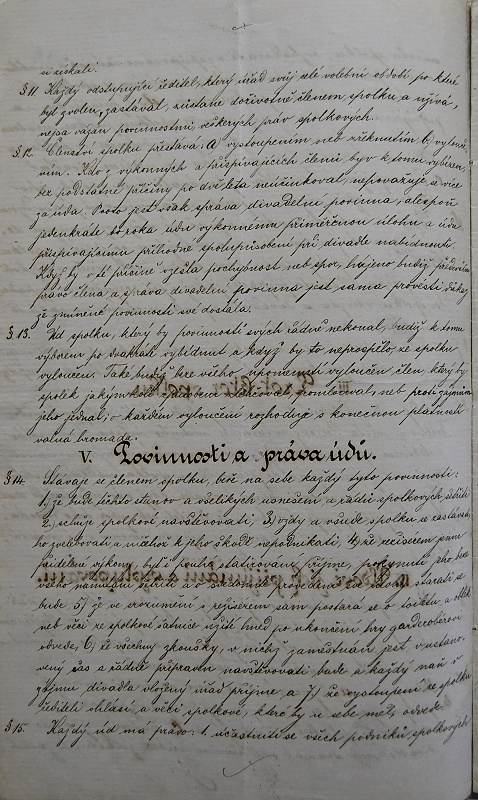 si získali.
§ 11 Každý odstupující ředitel, který úřad svůj celé volební období, po které
byl zvolen, zastával, zůstane doživotně členem spolku a užívá,
nejsa vázán povinnostmi, veškerých práv spolkových.
§ 12. Členství spolku přestává: a) vystoupením neb zřeknutím b, vylouče-
ním. Kdo z výkonných a přispívajících členů byv k tomu vybízen,
bez podstatné příčiny po dvě léta neúčinkoval, nepovažuje se více
za úda. Proto jest však správa divadelní povinna, alespoň
jedenkráte do roka údu výkonnému přiměřenou úlohu a údu
přispívajícímu příhodné spolupůsobení při divadle nabídnouti.
Když by v té příčině vzešla pochybnost neb spor, hájeno budiž
právo člena a správa divadelní povinna jest sama provésti důkaz,
že zmíněné povinnosti své dostála.
§ 13. Úd spolku, který by povinnosti svých řádně nekonal, budiž k tomu
výborem po dvakráte vybídnut a když by to neprospělo, ze spolku
vyloučen. Také budiž bez všeho upomenutí vyloučen člen, který by
spolek jakýmkoli způsobem zlehčoval, pomlouval, neb proti zájmům
jeho jednal; o každém vyloučení rozhoduje s konečnou platností
valná hromada.
V. Povinnosti a práva údů.
§ 14. Stávaje se členem spolku, béře na sebe každý tyto povinnosti:
1, že bude těchto stanov a všelikých usnešení a řádů spolkových šetřiti
2, schůze spolkové navštěvovati, 3, vždy a všude spolku se zastávati,
ho zvelebovati a ničeho k jeho škodě nepodnikati, 4, že režisérem jemu
přidělené výkony, byť i pouhé statisování přijme, pokynutí jeho bez
všeho namítání šetřiti a o svědomité provedení své úlohy starati se
bude 5) že ve srozumění s režisérem sám postará se o toiletu a oblek
neb věci ze spolkové šatnice užité hned po ukončení hry garderobierovi
odvede, 6, že všechny zkoušky, v nichž zaměstnán jest v ustano-
vený čas a řádně připraven navštěvovati bude a každý naň v
zájmu divadla vložený úřad přijme a 7) že vystoupení ze spolku
řediteli ohlásí a věci spolkové, které by u sebe měl, odvede
§ 15. Každý úd má právo: 1. účastniti se všech podniků spolkových